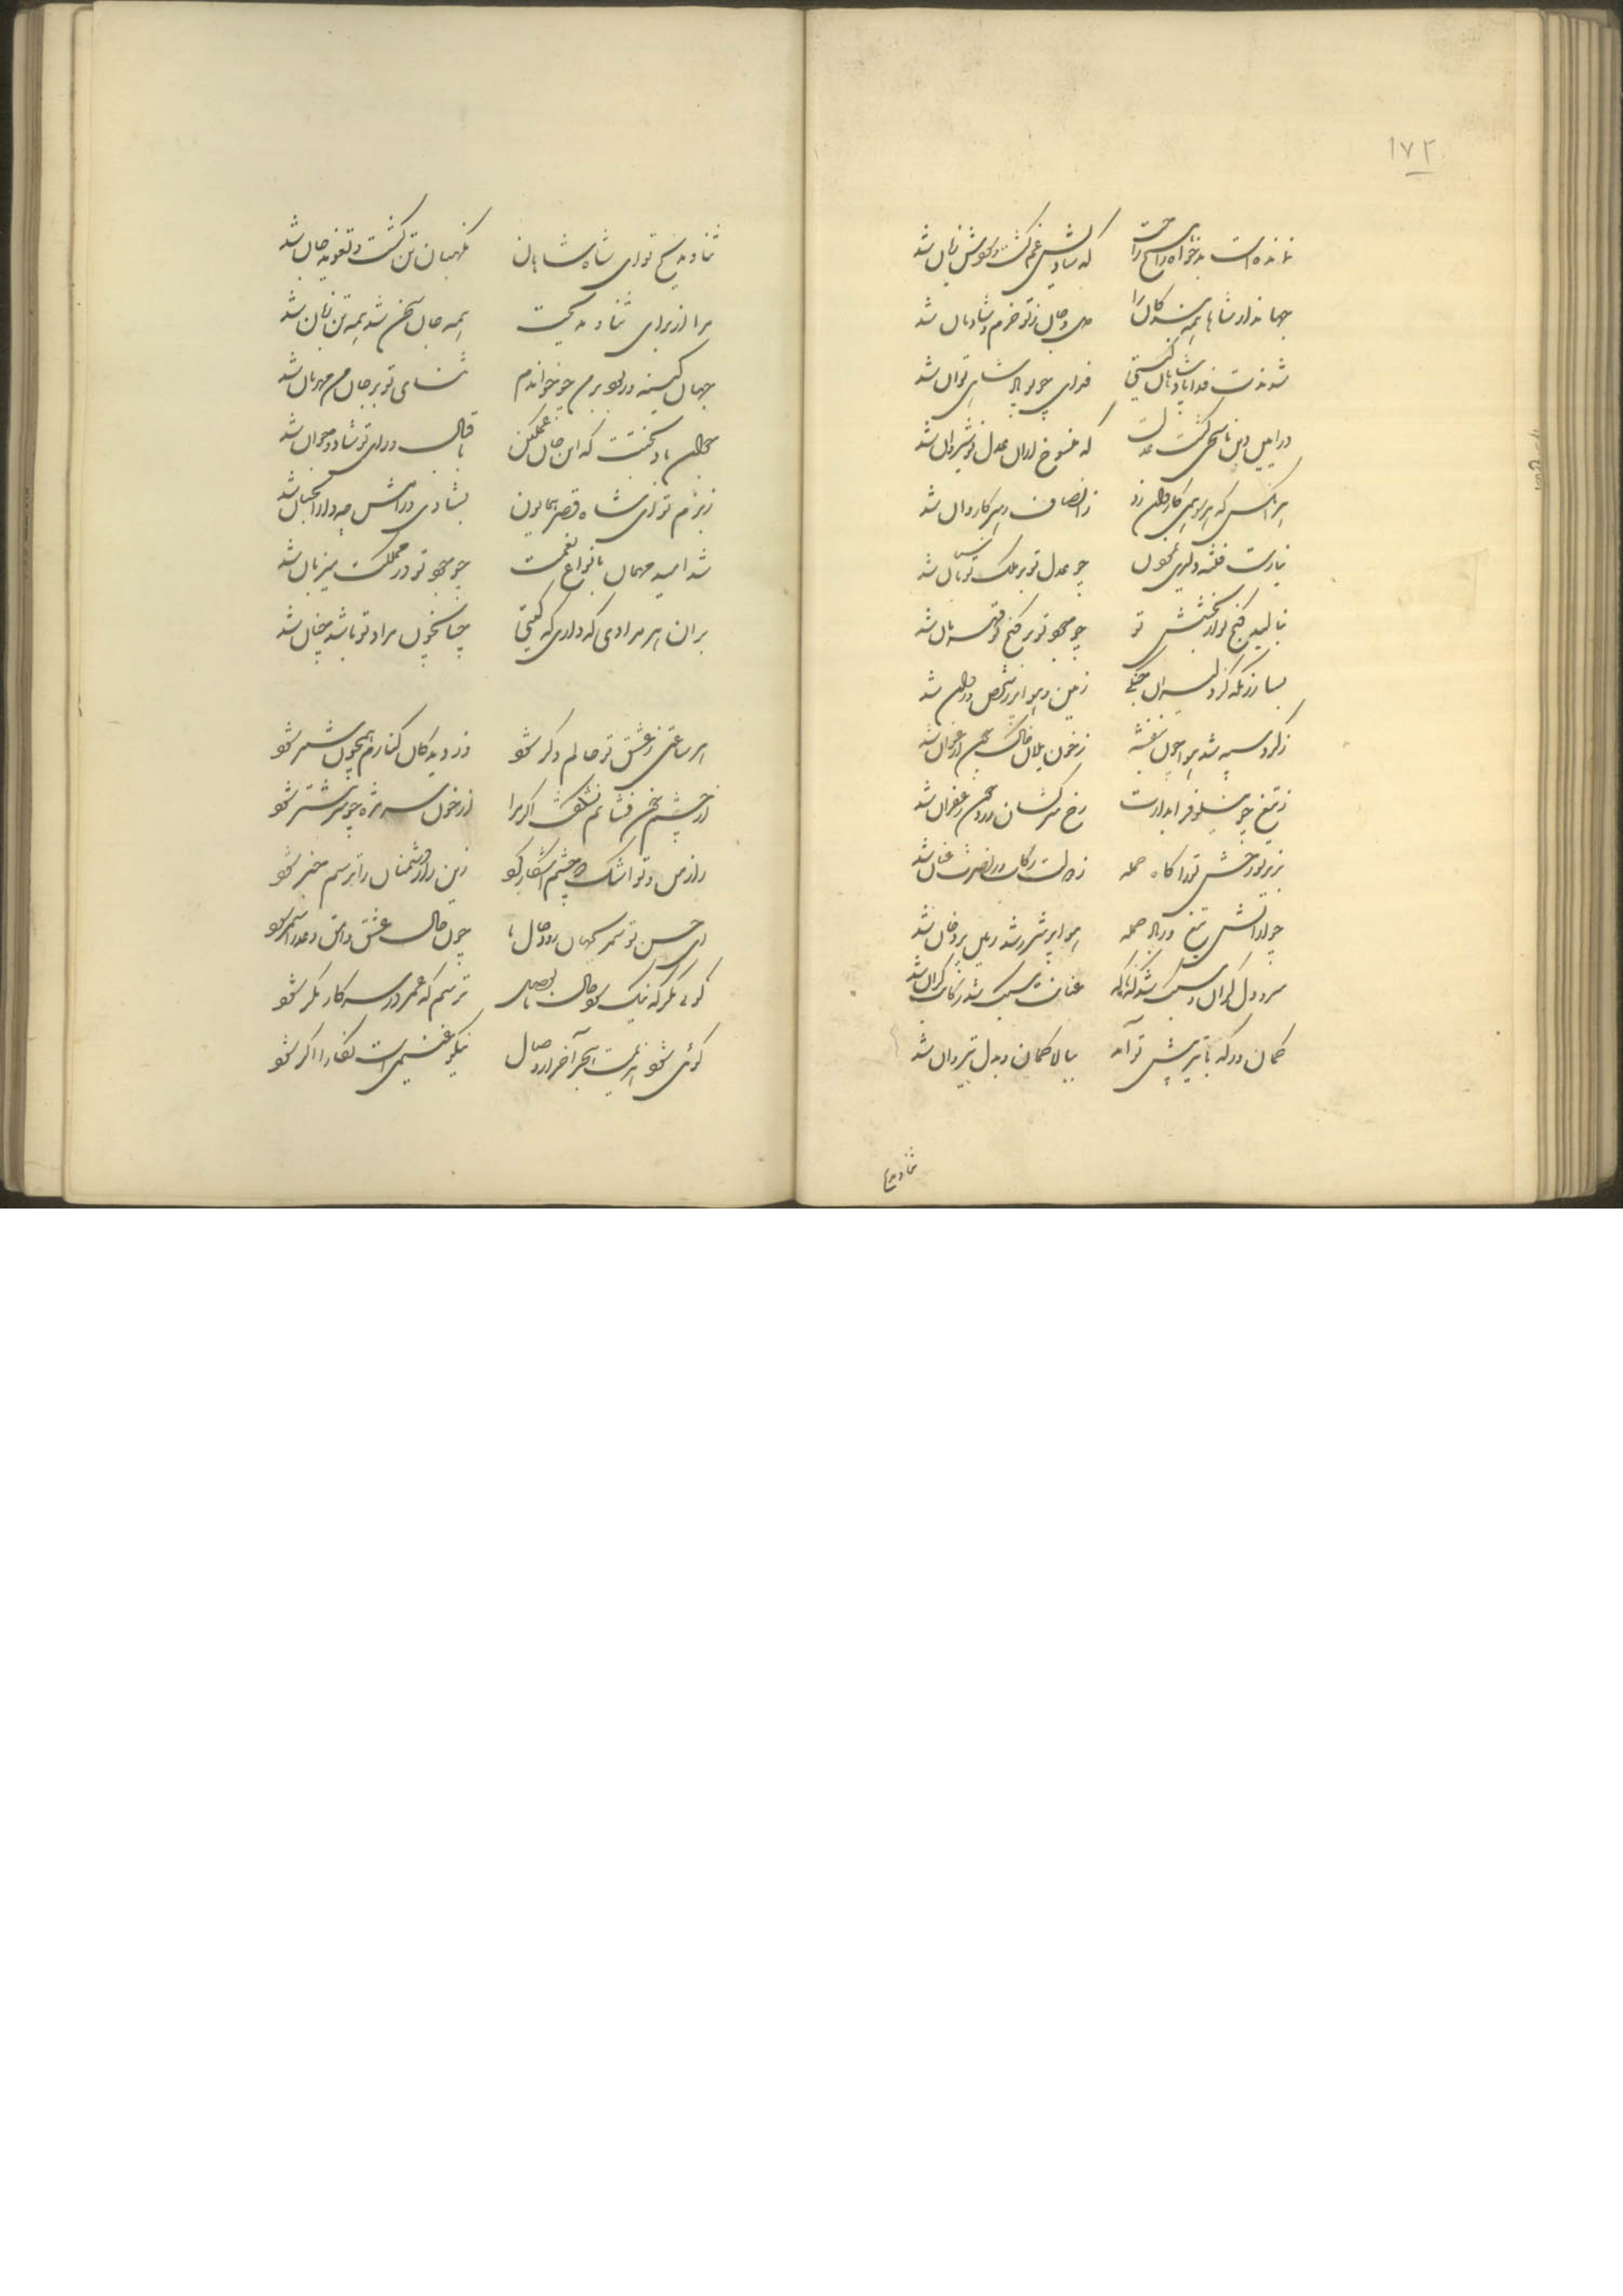 ۱۷۲
نمانده است بدخواه را هیچ راحت که شادیش غم گشت و سودش زیان شد
جهاندار شاها همه بندگان را دل و جان ز تو خرم و شادمان شد
شدندت فدا پادشاهان گیتی فدای چو تو پادشاهی توان شد
در این دین ناسخی گشت عدلت که منسوخ از آن عدل نوشیروان شد
هر آنکس که او بر سر کاروان زد ز انصاف تو رهبر کاروان شد
نیارست فتنه دلیری نمودن چو عدل تو بر ملک تو پاسبان شد
بنالید گنج تو از بخشش تو چو جود تو بر گنج تو قهرمان شد
بسا رزمگه کز دلیران جنگی زمین و هوا پر ز شخص و روان شد
ز گرد سیه شد هوا چون بنفشه ز خون یلان خاک چون ارغوان شد
ز تیغ چو نیلوفر آبدارت رخ سرکشان در وغا زعفران شد
بزیر تو رخش تو را گاه حمله ز دولت رکاب و ز نصرت عنان شد
چو از آتش تیغ در حمله هوا پر شرر شد زمین پر دخان شد
سر و دل گران و سبک شد که ناگه عنانت سبک شد رکابت گران شد
کمان ور که با تیر پیش تو آمد ببالا کمان و بدل تیردان شد
ثنا و مدیح
ثنا و مدیح تو ای شاه شاهان نگهبان تن گشت و تعویذ جان شد
مرا از برای ثنا و مدیحت همه جان سخن شد همه تن زبان شد
جهان کینه ور بود بر من چو خواندم ثنای تو بر جان من مهربان شد
جوان باد بختت که این جان غمگین باقبال و رای تو شاد و جوان شد
ز بزم تو ای شاه قصر همایون بشادی و رامش چو دار الجنان شد
شد امید مهمان بانواع نعمت چو جود تو در مملکت میزبان شد
بران هر مرادی که داری که گیتی چنانچون مراد تو باشد چنان شد
هر ساعتی ز عشق تو حالم دگر شود وز دیدگان کنارم همچون شمر شود
از چشم خون فشانم نشگفت اگر مرا از خون سر مژه چو سر نیشتر شود
راز من و تو اشک دو چشم آشکار کرد زین راز دشمنان را ترسم خبر شود
ای حسن تو سمر بجهان زود حال ما چون حال عشق وامق و عذرا سمر شود
گوئی مگر که نیک شود حال ما بوصل ترسم که عمر در سر کار مگر شود
گوئی شود نهایت هجر آخر از وصال نیکو غنیمتی است بقا را اگر شود